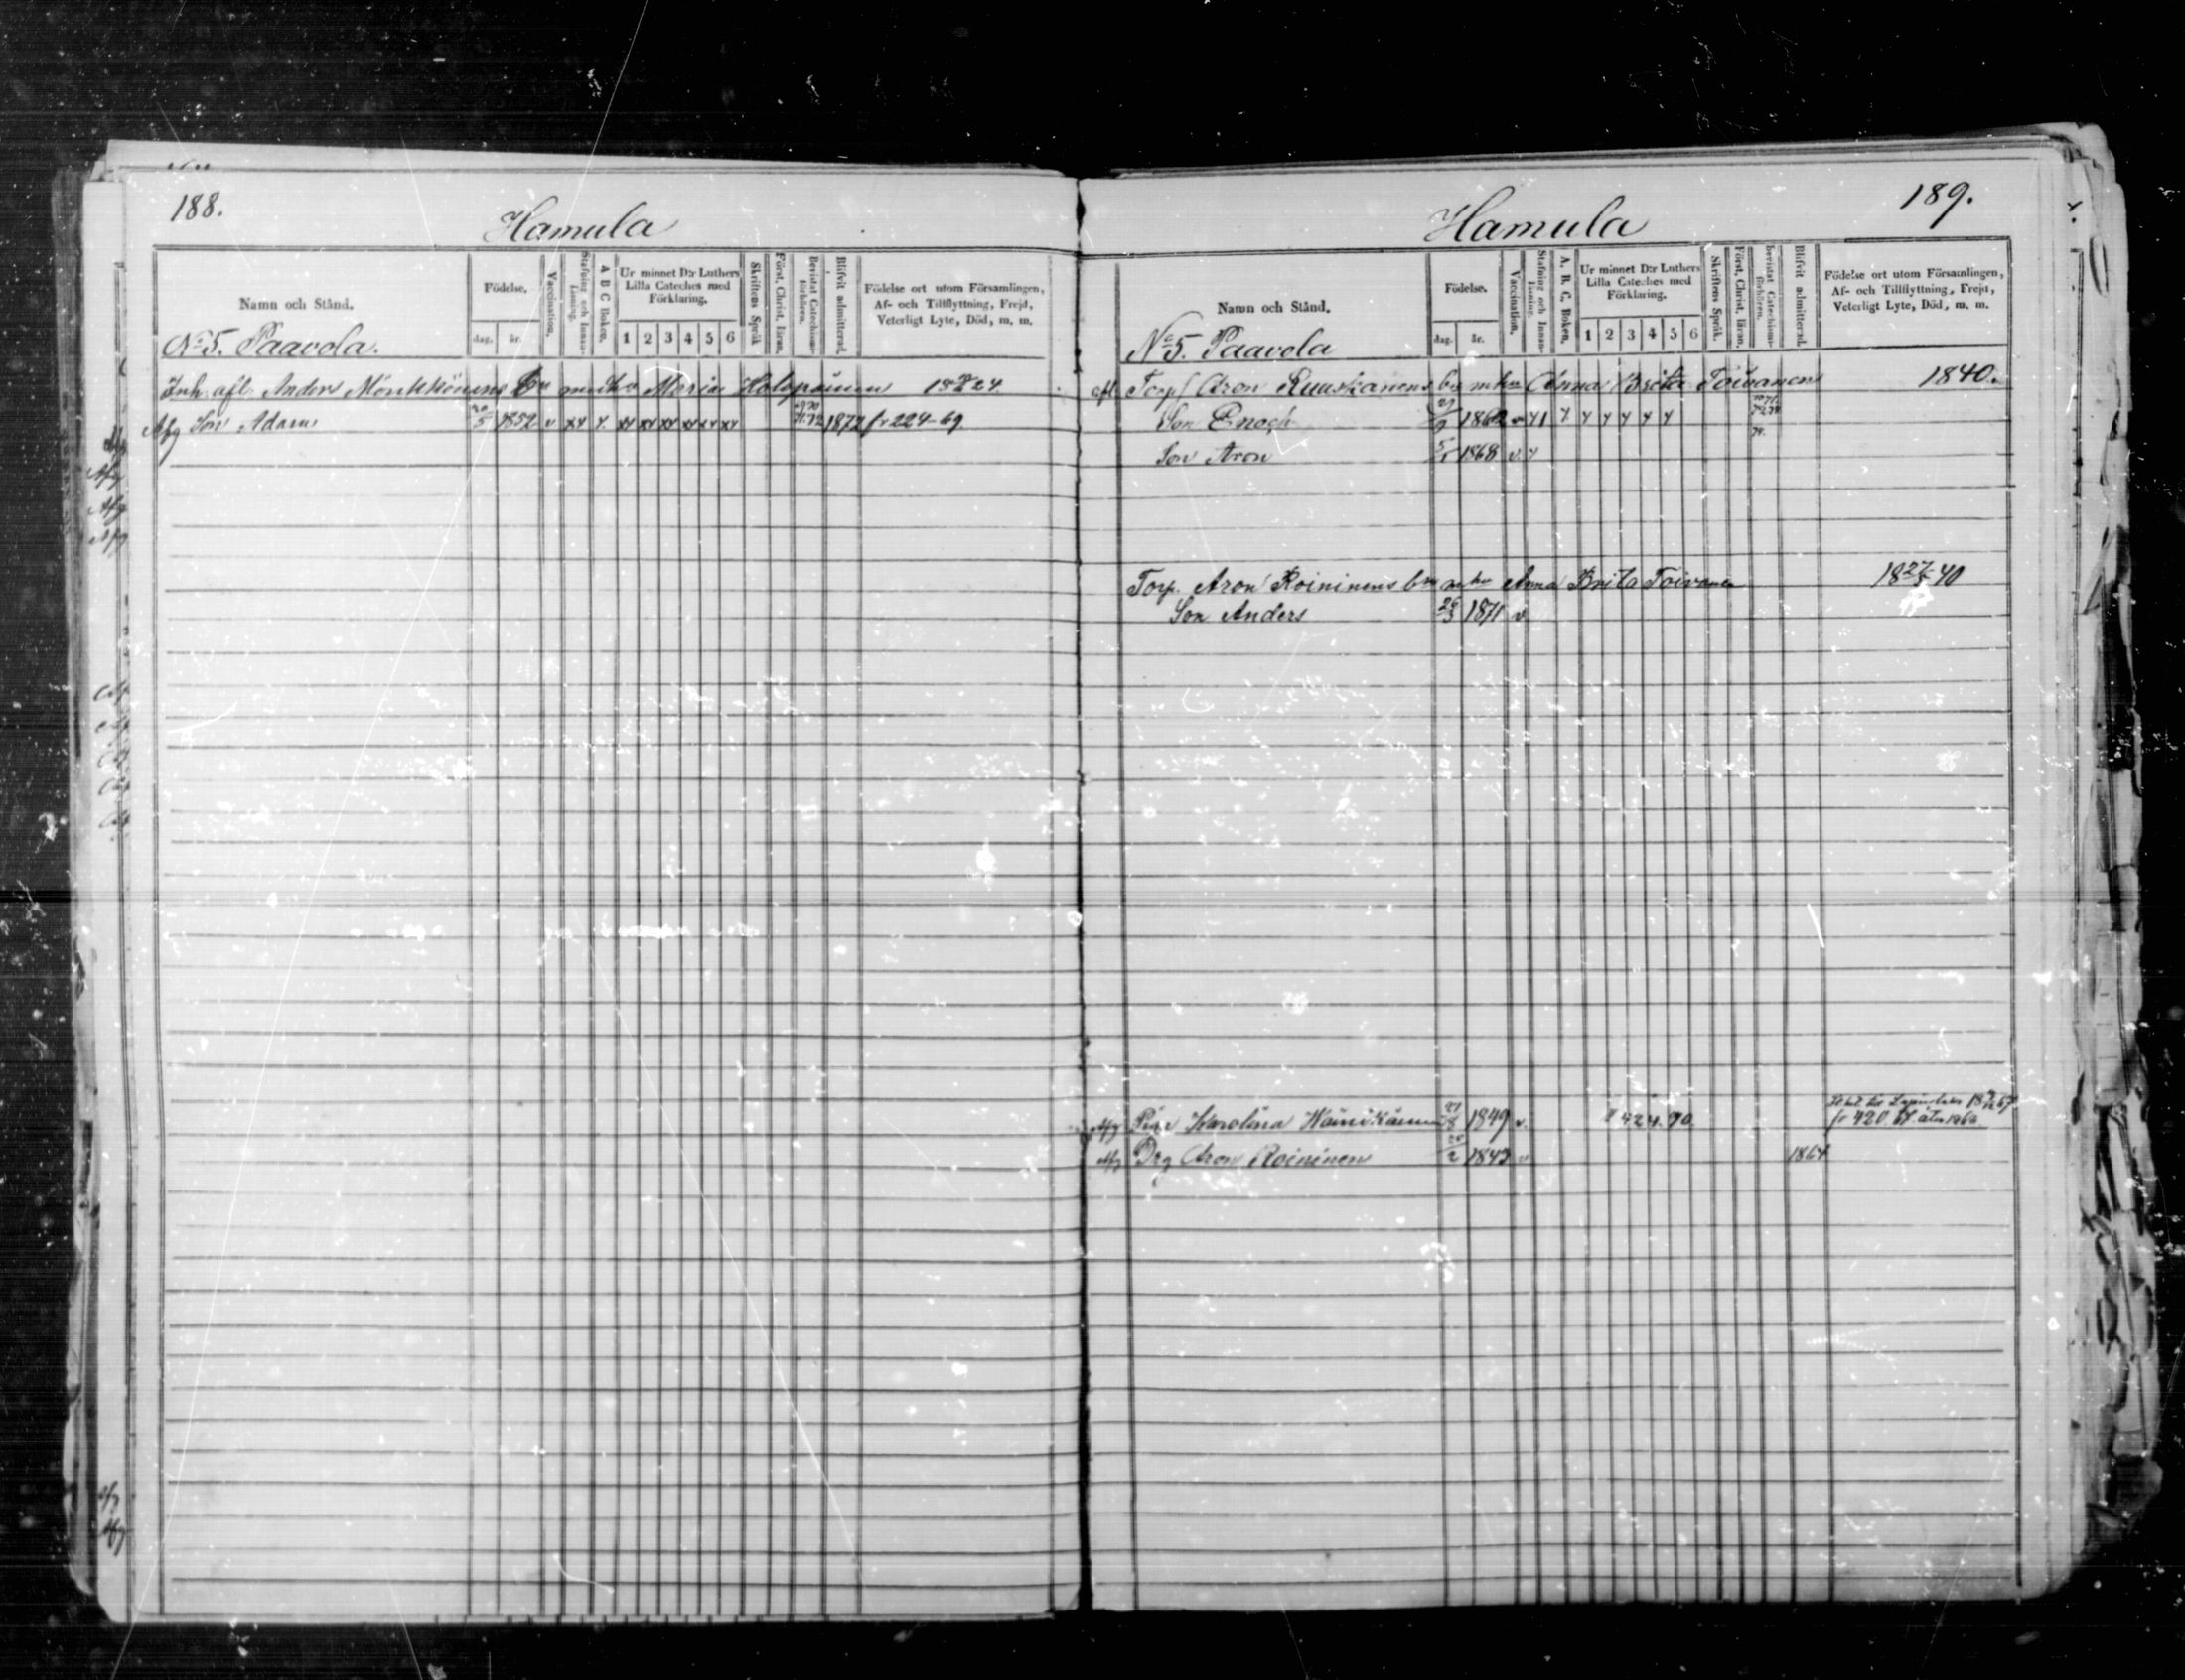 188.
Hamula
Namn och Stånd.
Födelse.
dag. år.
Vaccination.
Stafning och Innan-läsning.
A B C Boken.
Ur minnet D:r Luthers Lilla Cateches med Förklaring.
1 2 3 4 5 6
Skriftens Språk
Först, Christ, läran.
Bevistat Catechismi-förhören.
Blifvit admitterad.
Födelse ort utom Församlingen,
Af- och Tillflyttning, Frejd,
Veterligt Lyte, Död, m. m.
No 5. Paavola.
Inh. afl. Anders Mönkkönens bn m hu Maria Holopainen 24.
Afg Son Adam 20/5 1852 v xy y. xy xy xy xy xy xy 1872 fr 224-69
189.
Hamula
Namn och Stånd.
Födelse.
dag. år.
Vaccination.
Stafning och Innan-läsning.
A. B. C. Boken.
Ur minnet D:r Luthers Lilla Cateches med Förklaring.
1 2 3 4 5 6
Skriftens Språk.
Först, Christ, läran.
bevistat Catechismi-förhören.
Blifvit admitterad.
Födelse ort utom Församlingen,
Af- och Tillflyttning, Frejd,
Veterligt Lyte, Död, m. m.
No 5. Paavola
afl. Torp Aron Ruuskanens bn m hu Anna Brita Toivanen 1840.
Son Enoch 1862 y y y y y y
Son Aron 1868 v. y
Torp. Aron Roininens bn m hu Anna Brita Toivanen 18 27/5 40
Son Anders 26/3 1871 v.
Afg Pig Karolina 1849 v. 424. 70. fr 420
Afg Drg Aron Roininen 1843 v 1864